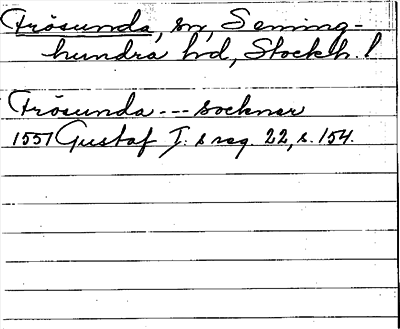 Frösunda, sn, Seming-
hundra hd, Stockh. l
Frösunda --- socknar
1551 Gustaf I:s reg. 22, s. 154.